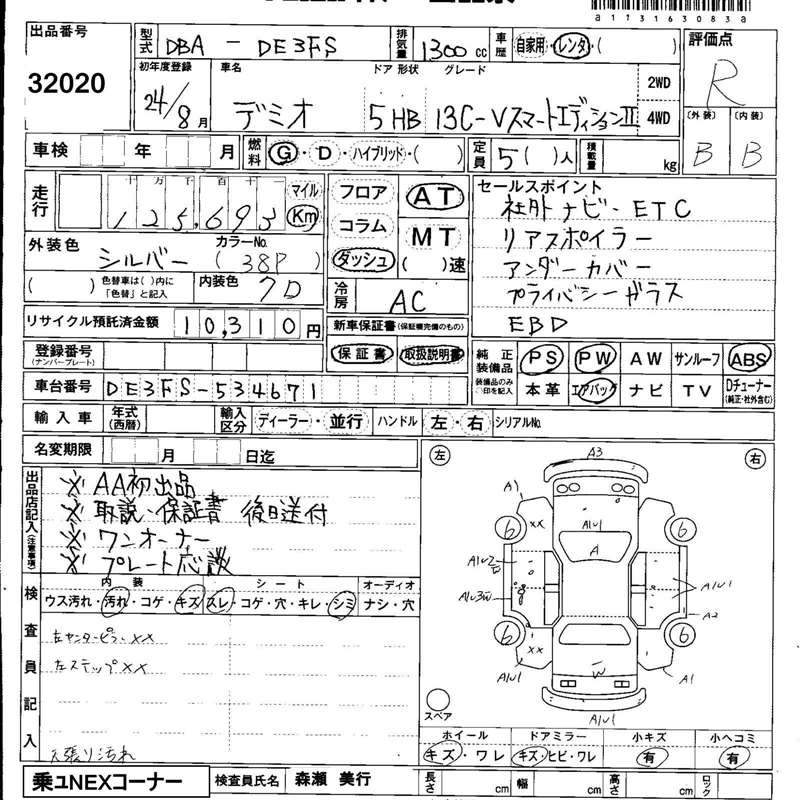 a1131163083a
出品番号
32020
型式 DBA - DE3FS 排気量 1300 cc 車歴 自家用・レンタ・( )
評価点
R
初年度登録 24/8月 車名 デミオ ドア 形状 5HB グレード 13C-VスマートエディションII 2WD 4WD
(外装) (内装)
B B
車検 年 月 燃料 G・D・ハイブリッド・( ) 定員 5( )人 積載量 kg
走行 十 万 千 百 十 一 マイル Km
125,693
フロア コラム ダッシュ
AT MT ( )速
セールスポイント
社外ナビ・ETC
リアスポイラー
アンダーカバー
プライバシーガラス
EBD
外装色 シルバー カラーNo. (38P)
( ) 色替車は( )内に「色替」と記入 内装色 7D
冷房 AC
リサイクル預託済金額 10,310円
新車保証書(保証欄完備のもの)
保証書 取扱説明書
登録番号 (ナンバープレート)
純正装備品 PS PW AW サンルーフ ABS
装備品のみ○印を記入 本革 エアバッグ ナビ TV Dチューナー (純正・社外含む)
車台番号 DE3FS-534671
輸入車 年式(西暦) 輸入区分 ディーラー・並行 ハンドル 左・右 シリアルNo.
名変期限 月 日迄
出品店記入(注意事項)
※ AA初出品
※ 取説・保証書 後日送付
※ ワンオーナー
※ プレート応談
左 右
A3
A1
XX
A1U1
A
6 6
A1U2
A1U3
A1U1
A2
6 6
XX
A1U1
W
A1
A1U1
スペア
検査員記入
内装 シート オーディオ
ウス汚れ・汚れ・コゲ・キズ スレ・コゲ・穴・キレ・シミ ナシ・穴
左センターピラーXX
左ステップXX
天張り汚れ
ホイール ドアミラー 小キズ 小ヘコミ
キズ・ワレ キズ・ヒビ・ワレ 有 有
乗ュNEXコーナー 検査員氏名 森瀬 美行 長さ cm 幅 cm 高さ cm ロック